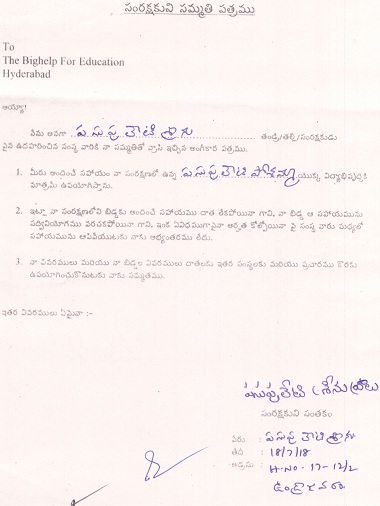 సంరక్షకుని సమ్మతి పత్రము
To
The Bighelp For Education
Hyderabad
అయ్యా!
మేము అనగా పసుపులేటి శ్రీను తండ్రి/తల్లి/సంరక్షకుడు
పైన ఉదహరించిన సంస్థ వారికి నా సమ్మతితో వ్రాసి ఇచ్చిన అంగీకార పత్రము.
1. మీరు అందించే సహాయం నా సంరక్షణలో ఉన్న పసుపులేటి పోశమ్మ యొక్క విద్యాభివృద్ధికి
మాత్రమే ఉపయోగిస్తాను.
2. ఇట్లా నా సంరక్షణలోని బిడ్డకు అందించే సహాయము దాత లేకపోయినా గాని, నా బిడ్డ ఆ సహాయమును
సద్వినియోగము పరచకపోయినా గాని, ఇంక ఏవిధముగానైనా అర్హత కోల్పోయినా పై సంస్థ వారు మధ్యలో
సహాయమును ఆపివేయుటకు నాకు అభ్యంతరము లేదు.
3. నా వివరములు మరియు నా బిడ్డల వివరములు దాతలకు ఇతర సంస్థలకు మరియు ప్రచారము కొరకు
ఉపయోగించుకొనుటకు నాకు సమ్మతము.
ఇతర వివరములు ఏమైనా :-
పసుపులేటి శ్రీను
సంరక్షకుని సంతకం
పేరు : పసుపులేటి శ్రీను
తేది : 18/7/18
అడ్రసు : H.NO. 17-12/2
ఉండ్రాజవరం